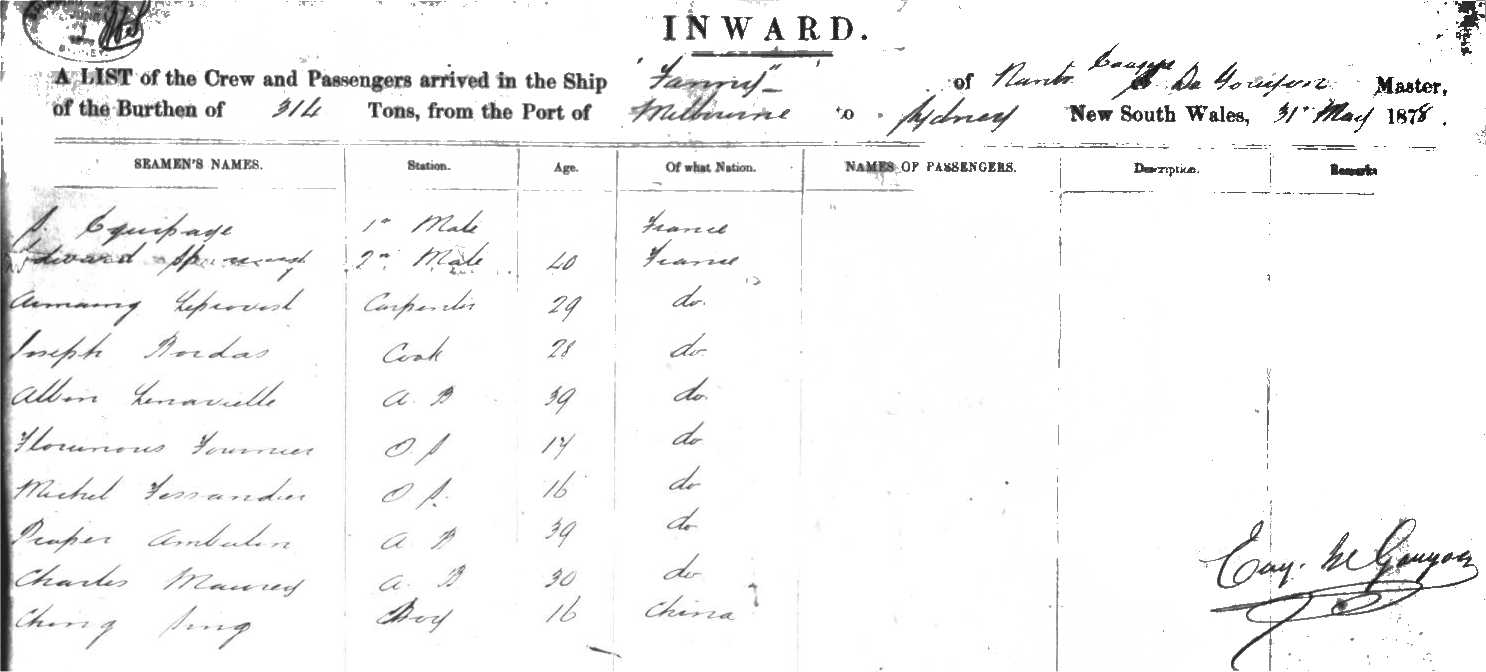 INWARD.
A LIST of the Crew and Passengers arrived in the Ship "Fanny" of Nantes Eugene De Master,
of the Burthen of 314 Tons, from the Port of Melbourne to Sydney New South Wales, 31st May 1878.
SEAMEN'S NAMES. Station. Age. Of what Nation. NAMES OF PASSENGERS. Description. Remarks
S. Equipage 1st Mate France
Edward 2nd Mate 40 France
Leprovost Carpenter 29 do.
Joseph Bordas Cook 28 do
Albin A. B 39 do.
Fournier O. S 17 do
Michel Tessandier O S. 16 do
Prosper A. B 39 do
Charles Maurey A. B 30 do
Ching Sing Boy 16 China
Eug. De